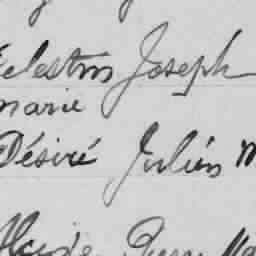 Celestin Joseph
marie
Désiré Julien M
Alcide Pierre Ma